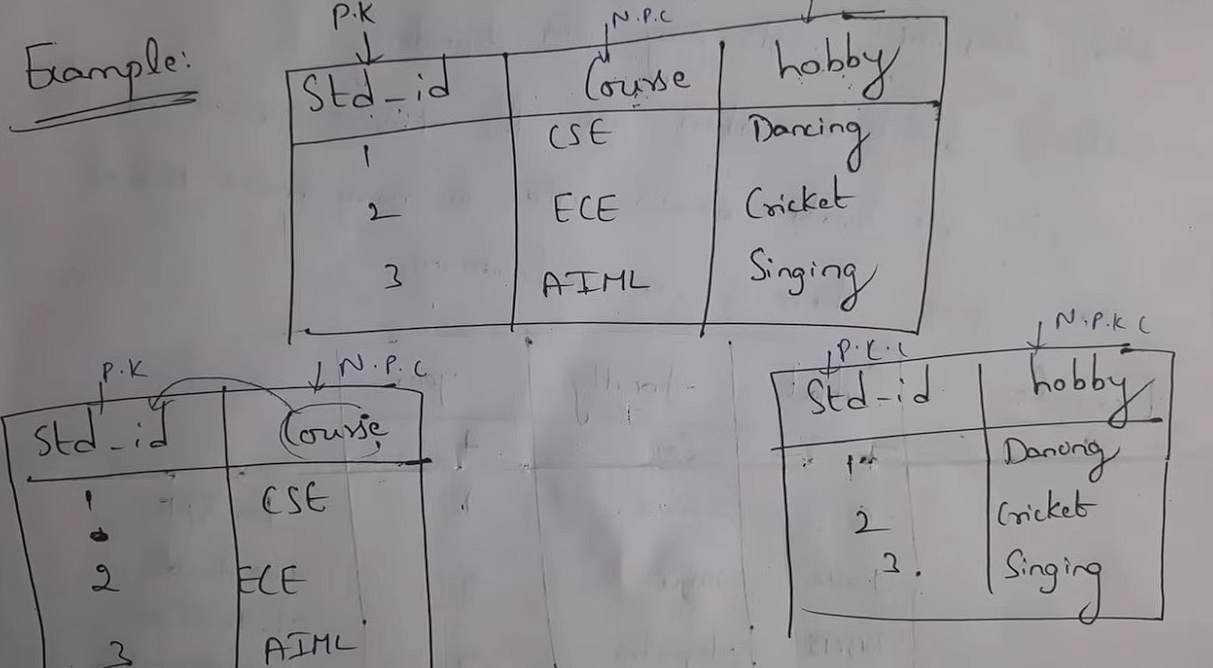 P.K N.P.C
Example:
Std_id Course hobby
1 CSE Dancing
2 ECE Cricket
3 AIML Singing
P.K N.P.C
Std_id Course
1 CSE
2 ECE
3 AIML
P.K.C N.P.K C
Std_id hobby
1 Dancing
2 Cricket
3. Singing